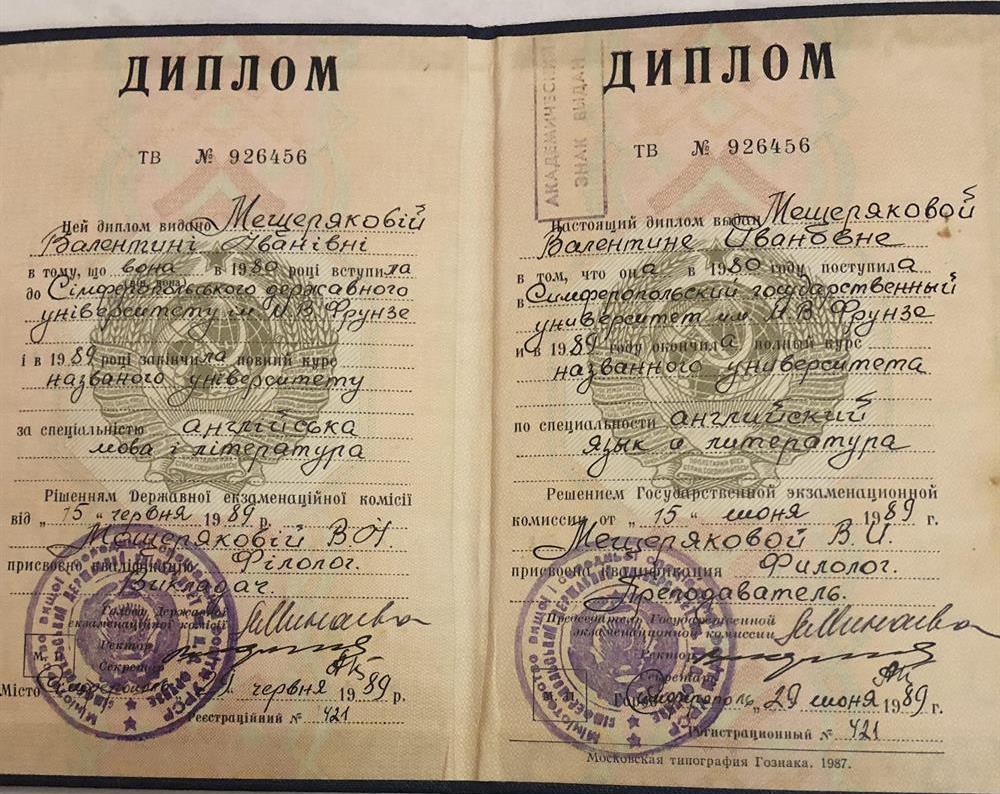 ДИПЛОМ
ТВ № 926456
Цей диплом видано Мещеряковій
Валентині Іванівні
в тому, що вона в 1980 році вступила
до Сімферопольського державного
університету ім М.В. Фрунзе
і в 1989 році закінчила повний курс
названого університету
за спеціальністю англійська
мова і література
Рішенням Державної екзаменаційної комісії
від „15“ червня 1989 р.
Мещеряковій В.І.
присвоєно кваліфікацію Філолог.
Викладач.
Голова Державної
екзаменаційної комісії
Ректор
Секретар
М. П.
Місто Сімферополь червня 1989 р.
Реєстраційний № 421
ДИПЛОМ
АКАДЕМИЧЕСКИЙ
ЗНАК ВЫДАН
ТВ № 926456
Настоящий диплом выдан Мещеряковой
Валентине Ивановне
в том, что она в 1980 году поступила
в Симферопольский государственный
университет им. М.В. Фрунзе
и в 1989 году окончила полный курс
названного университета
по специальности английский
язык и литература
Решением Государственной экзаменационной
комиссии от „15“ июня 1989 г.
Мещеряковой В.И.
присвоена квалификация Филолог.
Преподаватель.
Председатель Государственной
экзаменационной комиссии
Ректор
Секретарь
Город Симферополь, „29 июня 1989 г.
Регистрационный № 421
Московская типография Гознака. 1987.